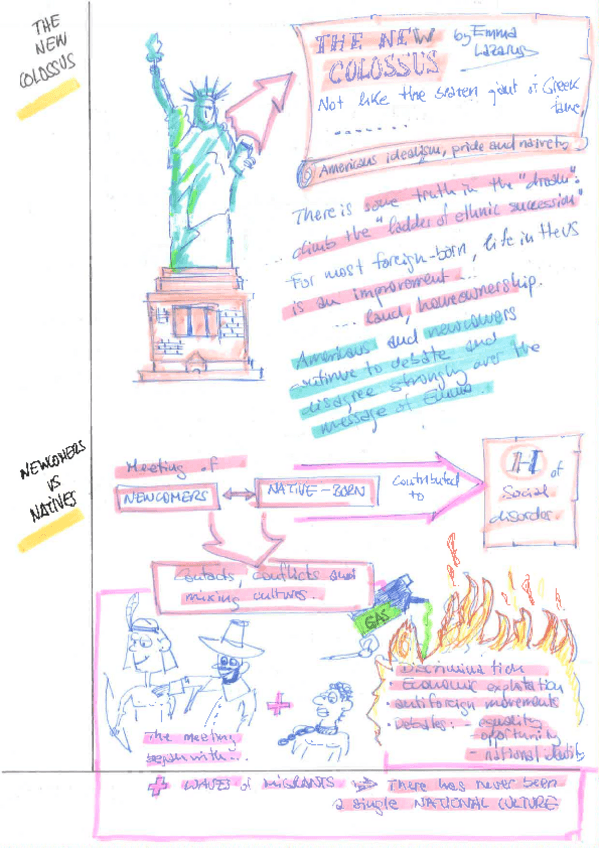 THE
NEW
COLOSSUS
THE NEW
COLOSSUS
by Emma
Lazarus
Not like the brazen giant of Greek
fame,
.......
Americans idealism, pride and naivety
There is some truth in the "dream":
... climb the "ladder of ethnic succession"
For most foreign-born, life in the US
is an improvement ...
... land, homeownership.
Americans and newcomers
continue to debate and
disagree strongly over the
message of Emma.
NEWCOMERS
IS
NATIVES
Meeting of
NEWCOMERS ↔ NATIVE-BORN
Contributed
to
H of
Social
disorder.
Contacts, conflicts and
mixing cultures.
GAS
Discrimination
· Economic exploitation
· antiforeign movements
· Debates: - equality
- opportunity
- national
The meeting
began with...
+
+ WAVES of MIGRANTS ⇒ There has never been
a single NATIONAL CULTURE